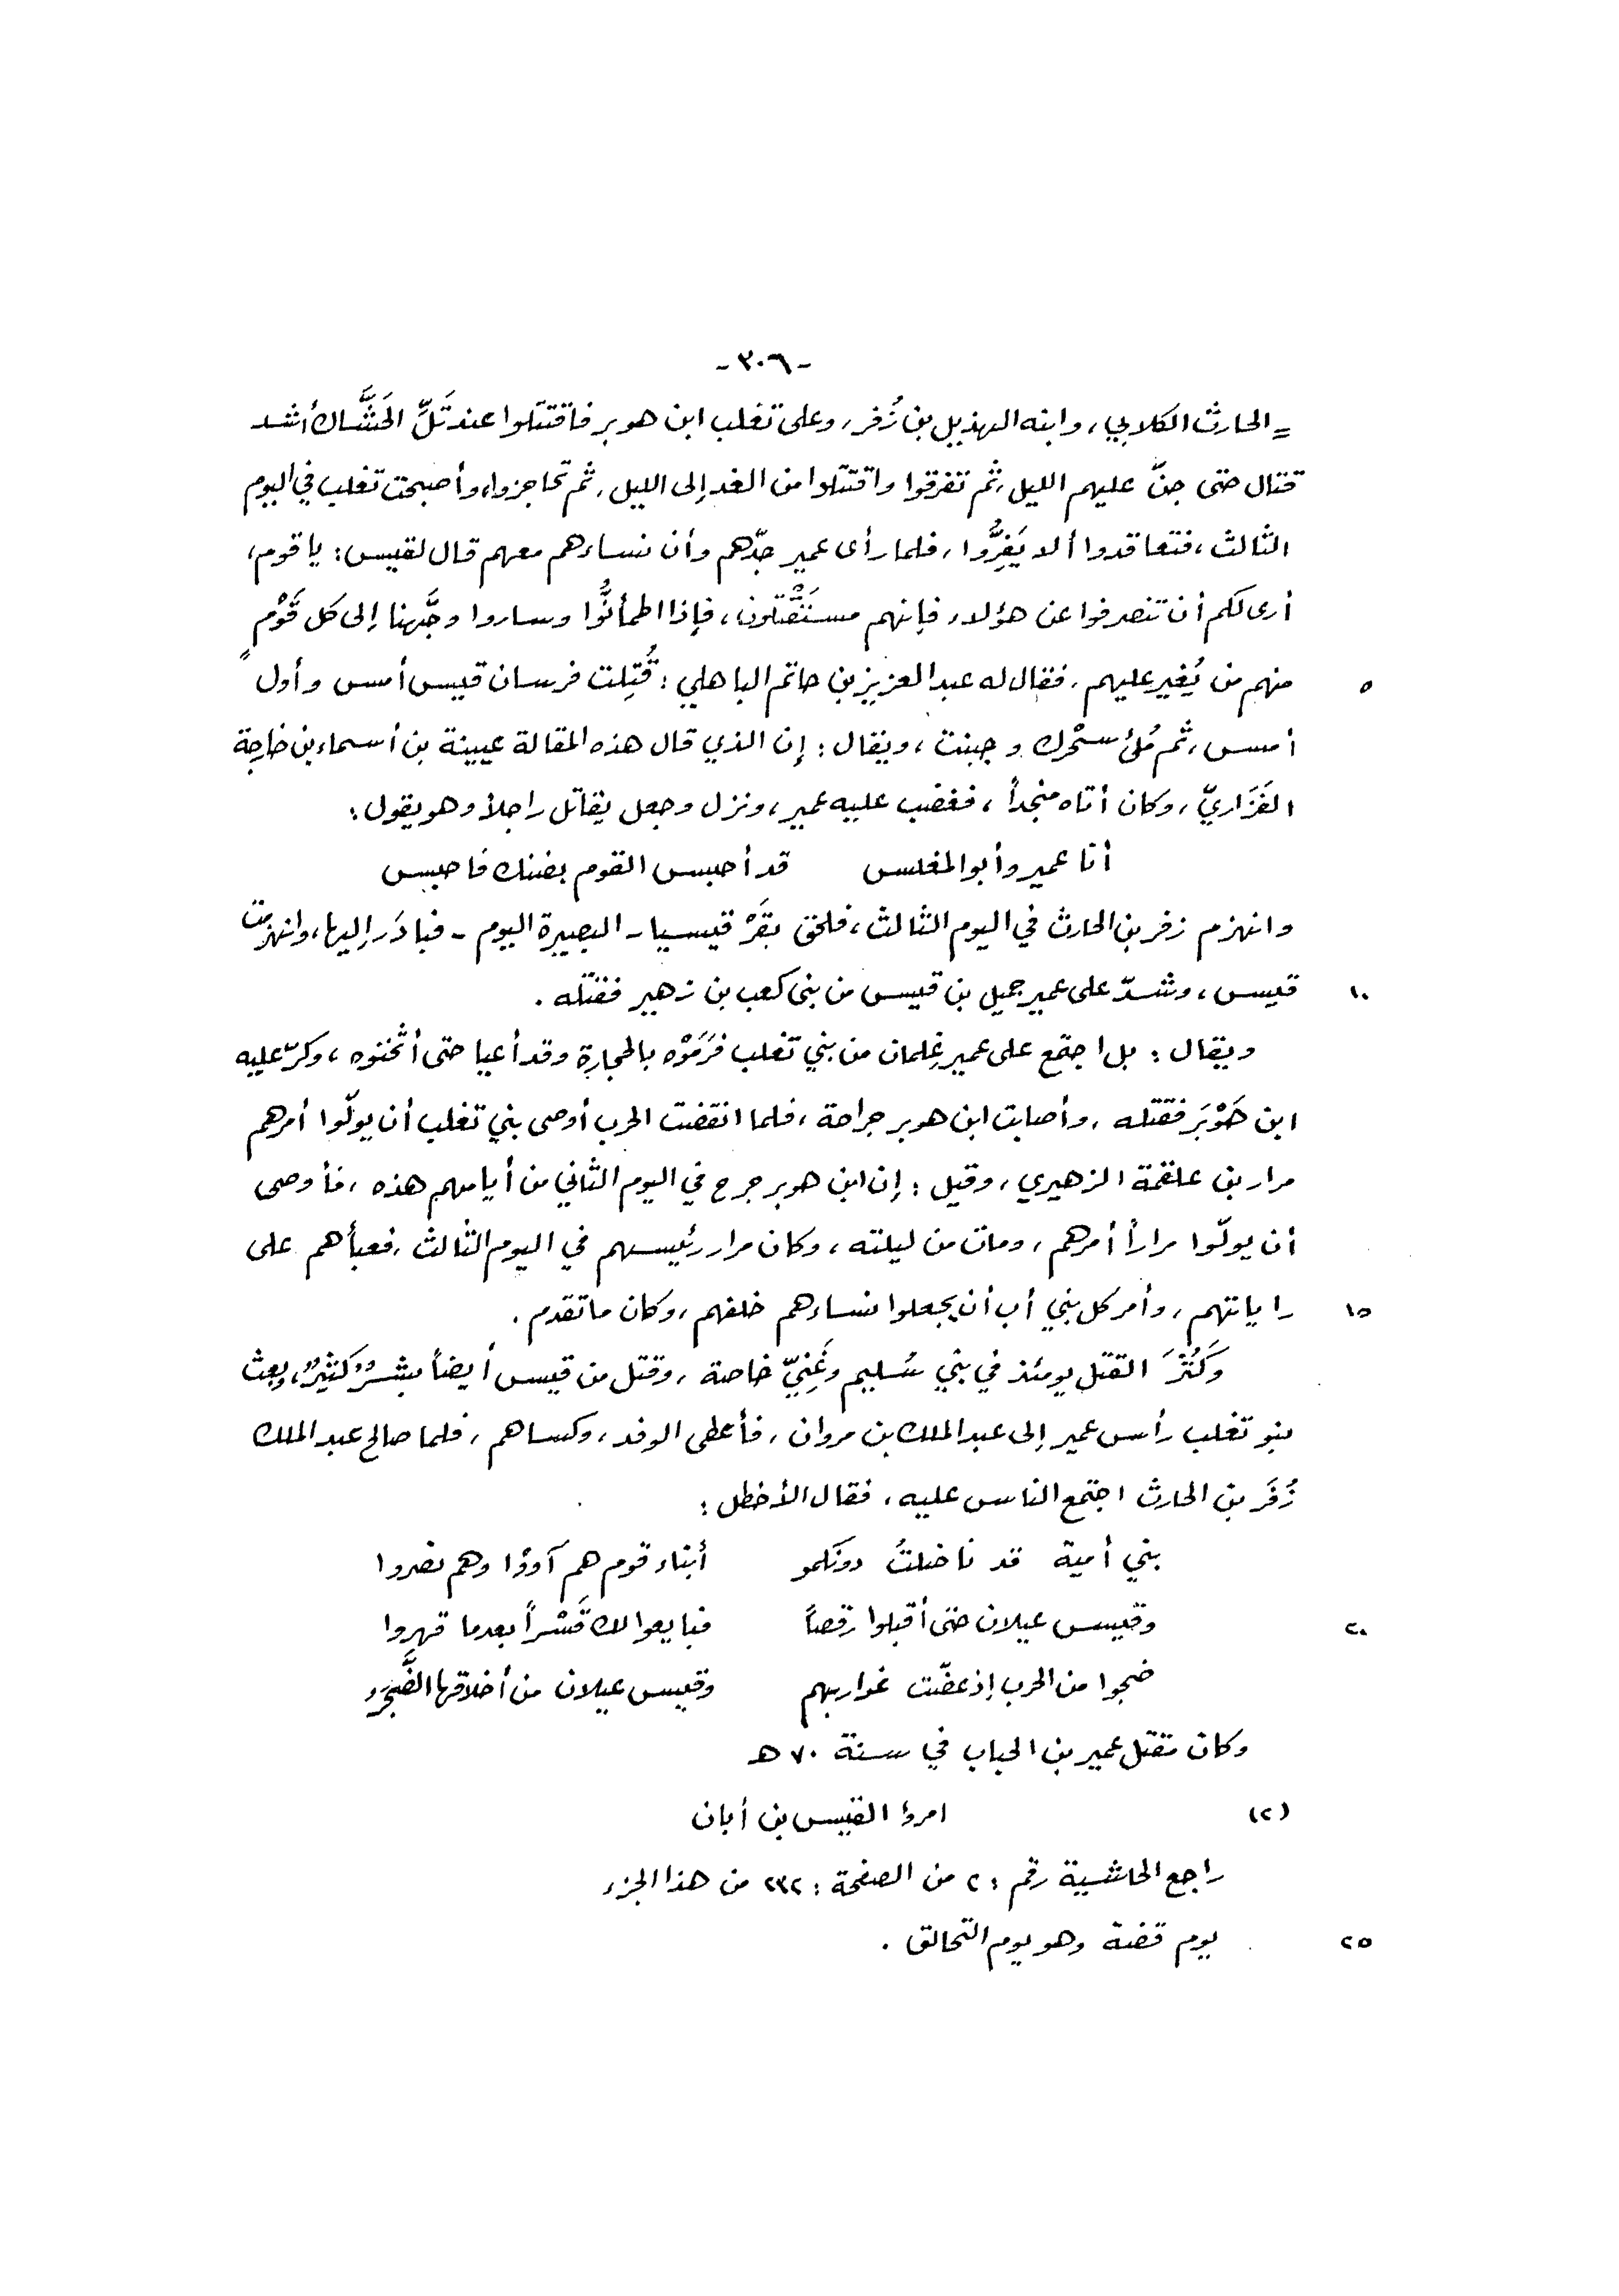 -٣٠٦-
= الحارث الكلابي، وابنه الهذيل بن زُفر، وعلى تغلب ابن هوبر فاقتتلوا عند تَلِّ الحَشَّاك أشد
قتال حتى جنّ عليهم الليل، ثم تفرقوا واقتتلوا من الغد إلى الليل، ثم تحاجزوا، وأصبحت تغلب في اليوم
الثالث، فتعاقدوا ألا يَفِرُّوا، فلما رأى عمير جدّهم وأن نساءهم معهم قال لقيس: يا قوم،
أرى لكم أن تنصرفوا عن هؤلاء فإنهم مستَقْتلون، فإذا اطمأنُّوا وساروا وجَّهنا إلى كل قَوْمٍ
٥ منهم من يُغير عليهم، فقال له عبد العزيز بن حاتم الباهلي: قُتِلت فرسان قيس أمس وأول
أمس، ثم مُلئ سَحْرك وجبنت، ويقال: إن الذي قال هذه المقالة عيينة بن أسماء بن خارجة
الفَزَاريّ، وكان أتاه منجداً، فغضب عليه عمير، ونزل وجعل يقاتل راجلاً وهو يقول:
أنا عمير وأبو المغلس قد أحبس القوم بضنك فاحبس
وانهزم زفر بن الحارث في اليوم الثالث، فلحق بقَرْقيسيا - البصيرة اليوم - فبادَر إليها، وانهزمت
١٠ قيس، وشدّ على عمير جميل بن قيس من بني كعب بن زهير فقتله.
ويقال: بل اجتمع على عمير غِلمان من بني تغلب فَرَمَوْه بالحجارة وقد أعيا حتى أثخنوه، وكرّ عليه
ابن هَوْبَر فقتله، وأصابت ابن هوبر جراحة، فلما انقضت الحرب أوصى بني تغلب أن يولّوا أمرهم
مرار بن علقمة الزهيري، وقيل: إن ابن هوبر جرح في اليوم الثاني من أيامهم هذه، فأوصى
أن يولّوا مراراً أمرهم، ومات من ليلته، وكان مرار رئيسهم في اليوم الثالث، فعبأهم على
١٥ راياتهم، وأمر كل بني أب أن يجعلوا نساءهم خلفهم، وكان ما تقدم.
وَكَثُرَ القتل يومئذ في بني سُليم وغَنِيّ خاصة، وقتل من قيس أيضاً بشرٌ كثيرٌ، وبعث
بنو تغلب رأس عمير إلى عبد الملك بن مروان، فأعطى الوفد، وكساهم، فلما صالح عبد الملك
زُفَر بن الحارث اجتمع الناس عليه، فقال الأخطل:
بني أمية قد ناضلتُ دونكمو أبناء قوم هم آووْا وهم نصروا
٢٠ وقيس عيلان حتى أقبلوا رقصاً فبايعوا لك قَسْراً بعدما قهروا
ضجوا من الحرب إذ عضّت غواربهم وقيس عيلان من أخلاقها الضَّجَرُ
وكان مقتل عمير بن الحباب في سنة ٧٠ هـ
(٢) امرؤ القيس بن أبان
راجع الحاشية رقم: ٢ من الصفحة: ٢٣٢ من هذا الجزء
٢٥ يوم قضة وهو يوم التحالق.